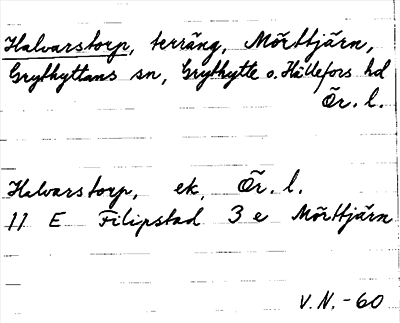 Halvarstorp, terräng, Mörttjärn,
Grythyttans sn, Grythytte o. Hällefors hd
Ör. l.
Halvarstorp, ek. Ör. l.
11 E Filipstad 3 e Mörttjärn
V.N. -60